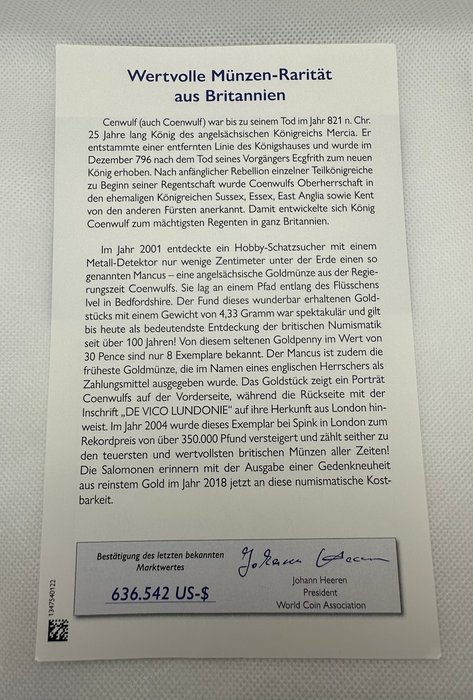 Wertvolle Münzen-Rarität
aus Britannien
Cenwulf (auch Coenwulf) war bis zu seinem Tod im Jahr 821 n. Chr.
25 Jahre lang König des angelsächsischen Königreichs Mercia. Er
entstammte einer entfernten Linie des Königshauses und wurde im
Dezember 796 nach dem Tod seines Vorgängers Ecgfrith zum neuen
König erhoben. Nach anfänglicher Rebellion einzelner Teilkönigreiche
zu Beginn seiner Regentschaft wurde Coenwulfs Oberherrschaft in
den ehemaligen Königreichen Sussex, Essex, East Anglia sowie Kent
von den anderen Fürsten anerkannt. Damit entwickelte sich König
Coenwulf zum mächtigsten Regenten in ganz Britannien.
Im Jahr 2001 entdeckte ein Hobby-Schatzsucher mit einem
Metall-Detektor nur wenige Zentimeter unter der Erde einen so
genannten Mancus – eine angelsächsische Goldmünze aus der Regie-
rungszeit Coenwulfs. Sie lag an einem Pfad entlang des Flüsschens
Ivel in Bedfordshire. Der Fund dieses wunderbar erhaltenen Gold-
stücks mit einem Gewicht von 4,33 Gramm war spektakulär und gilt
bis heute als bedeutendste Entdeckung der britischen Numismatik
seit über 100 Jahren! Von diesem seltenen Goldpenny im Wert von
30 Pence sind nur 8 Exemplare bekannt. Der Mancus ist zudem die
früheste Goldmünze, die im Namen eines englischen Herrschers als
Zahlungsmittel ausgegeben wurde. Das Goldstück zeigt ein Porträt
Coenwulfs auf der Vorderseite, während die Rückseite mit der
Inschrift „DE VICO LUNDONIE" auf ihre Herkunft aus London hin-
weist. Im Jahr 2004 wurde dieses Exemplar bei Spink in London zum
Rekordpreis von über 350.000 Pfund versteigert und zählt seither zu
den teuersten und wertvollsten britischen Münzen aller Zeiten!
Die Salomonen erinnern mit der Ausgabe einer Gedenkneuheit
aus reinstem Gold im Jahr 2018 jetzt an diese numismatische Kost-
barkeit.
Bestätigung des letzten bekannten
Marktwertes
636.542 US-$
Johann Heeren
Johann Heeren
President
World Coin Association
1347540122